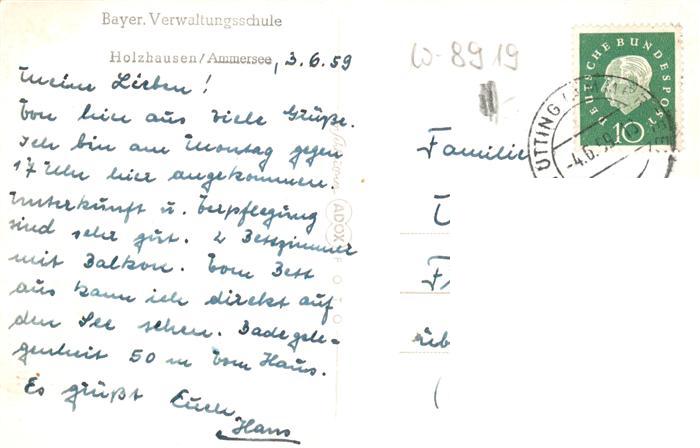 Bayer. Verwaltungsschule
Holzhausen/Ammersee, 3.6.59
Meine Lieben!
Von hier aus viele Grüße.
Ich bin am Montag gegen
17 Uhr hier angekommen.
Unterkunft u. Verpflegung
sind sehr gut. 2 Bettzimmer
mit Balkon. Vom Bett
aus kann ich direkt auf
den See sehen. Badegele-
genheit 50 m vom Haus.
Es grüßt Euch
Hans
ADOX
FOTO
W-8919
Familie
üb
DEUTSCHE BUNDESPOST
10
UTTING
-4.6.59